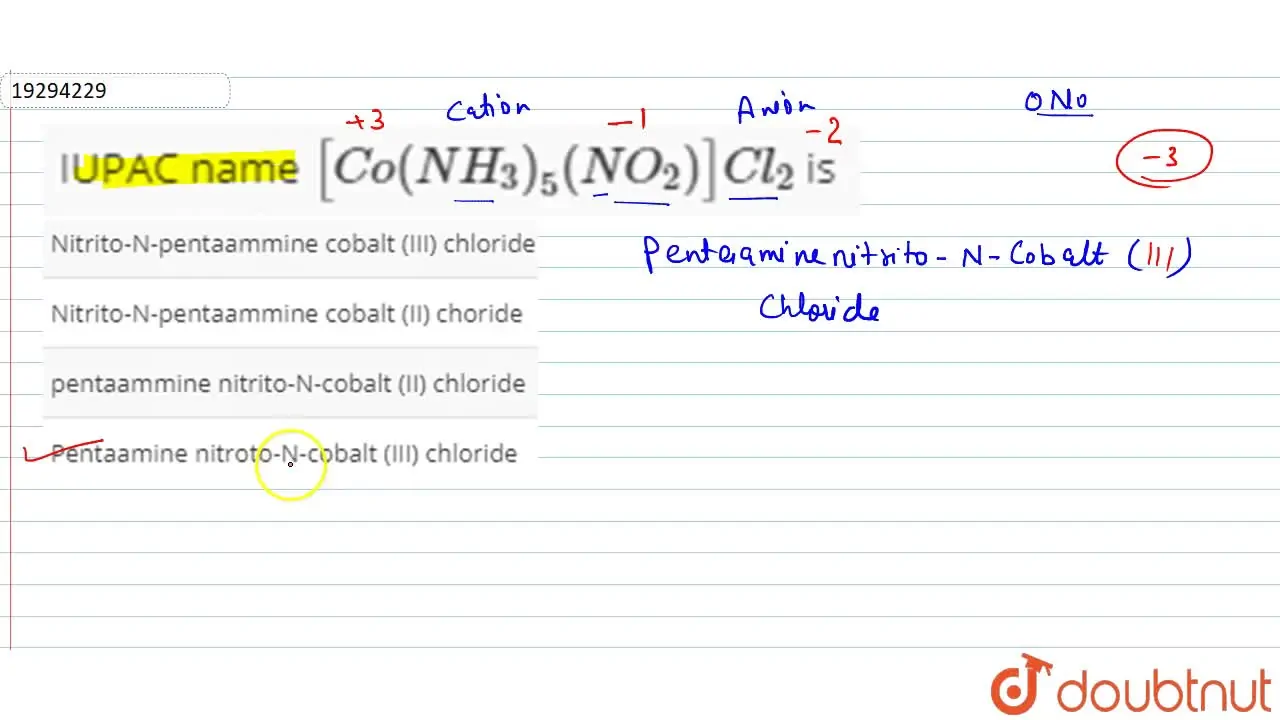 19294229
Cation
Anion
ONO
+3
-1
-2
-3
IUPAC name [Co(NH₃)₅(NO₂)]Cl₂ is
Nitrito-N-pentaammine cobalt (III) chloride
Pentaamine nitrito - N - Cobalt (III)
Chloride
Nitrito-N-pentaammine cobalt (II) choride
pentaammine nitrito-N-cobalt (II) chloride
Pentaamine nitroto-N-cobalt (III) chloride
doubtnut